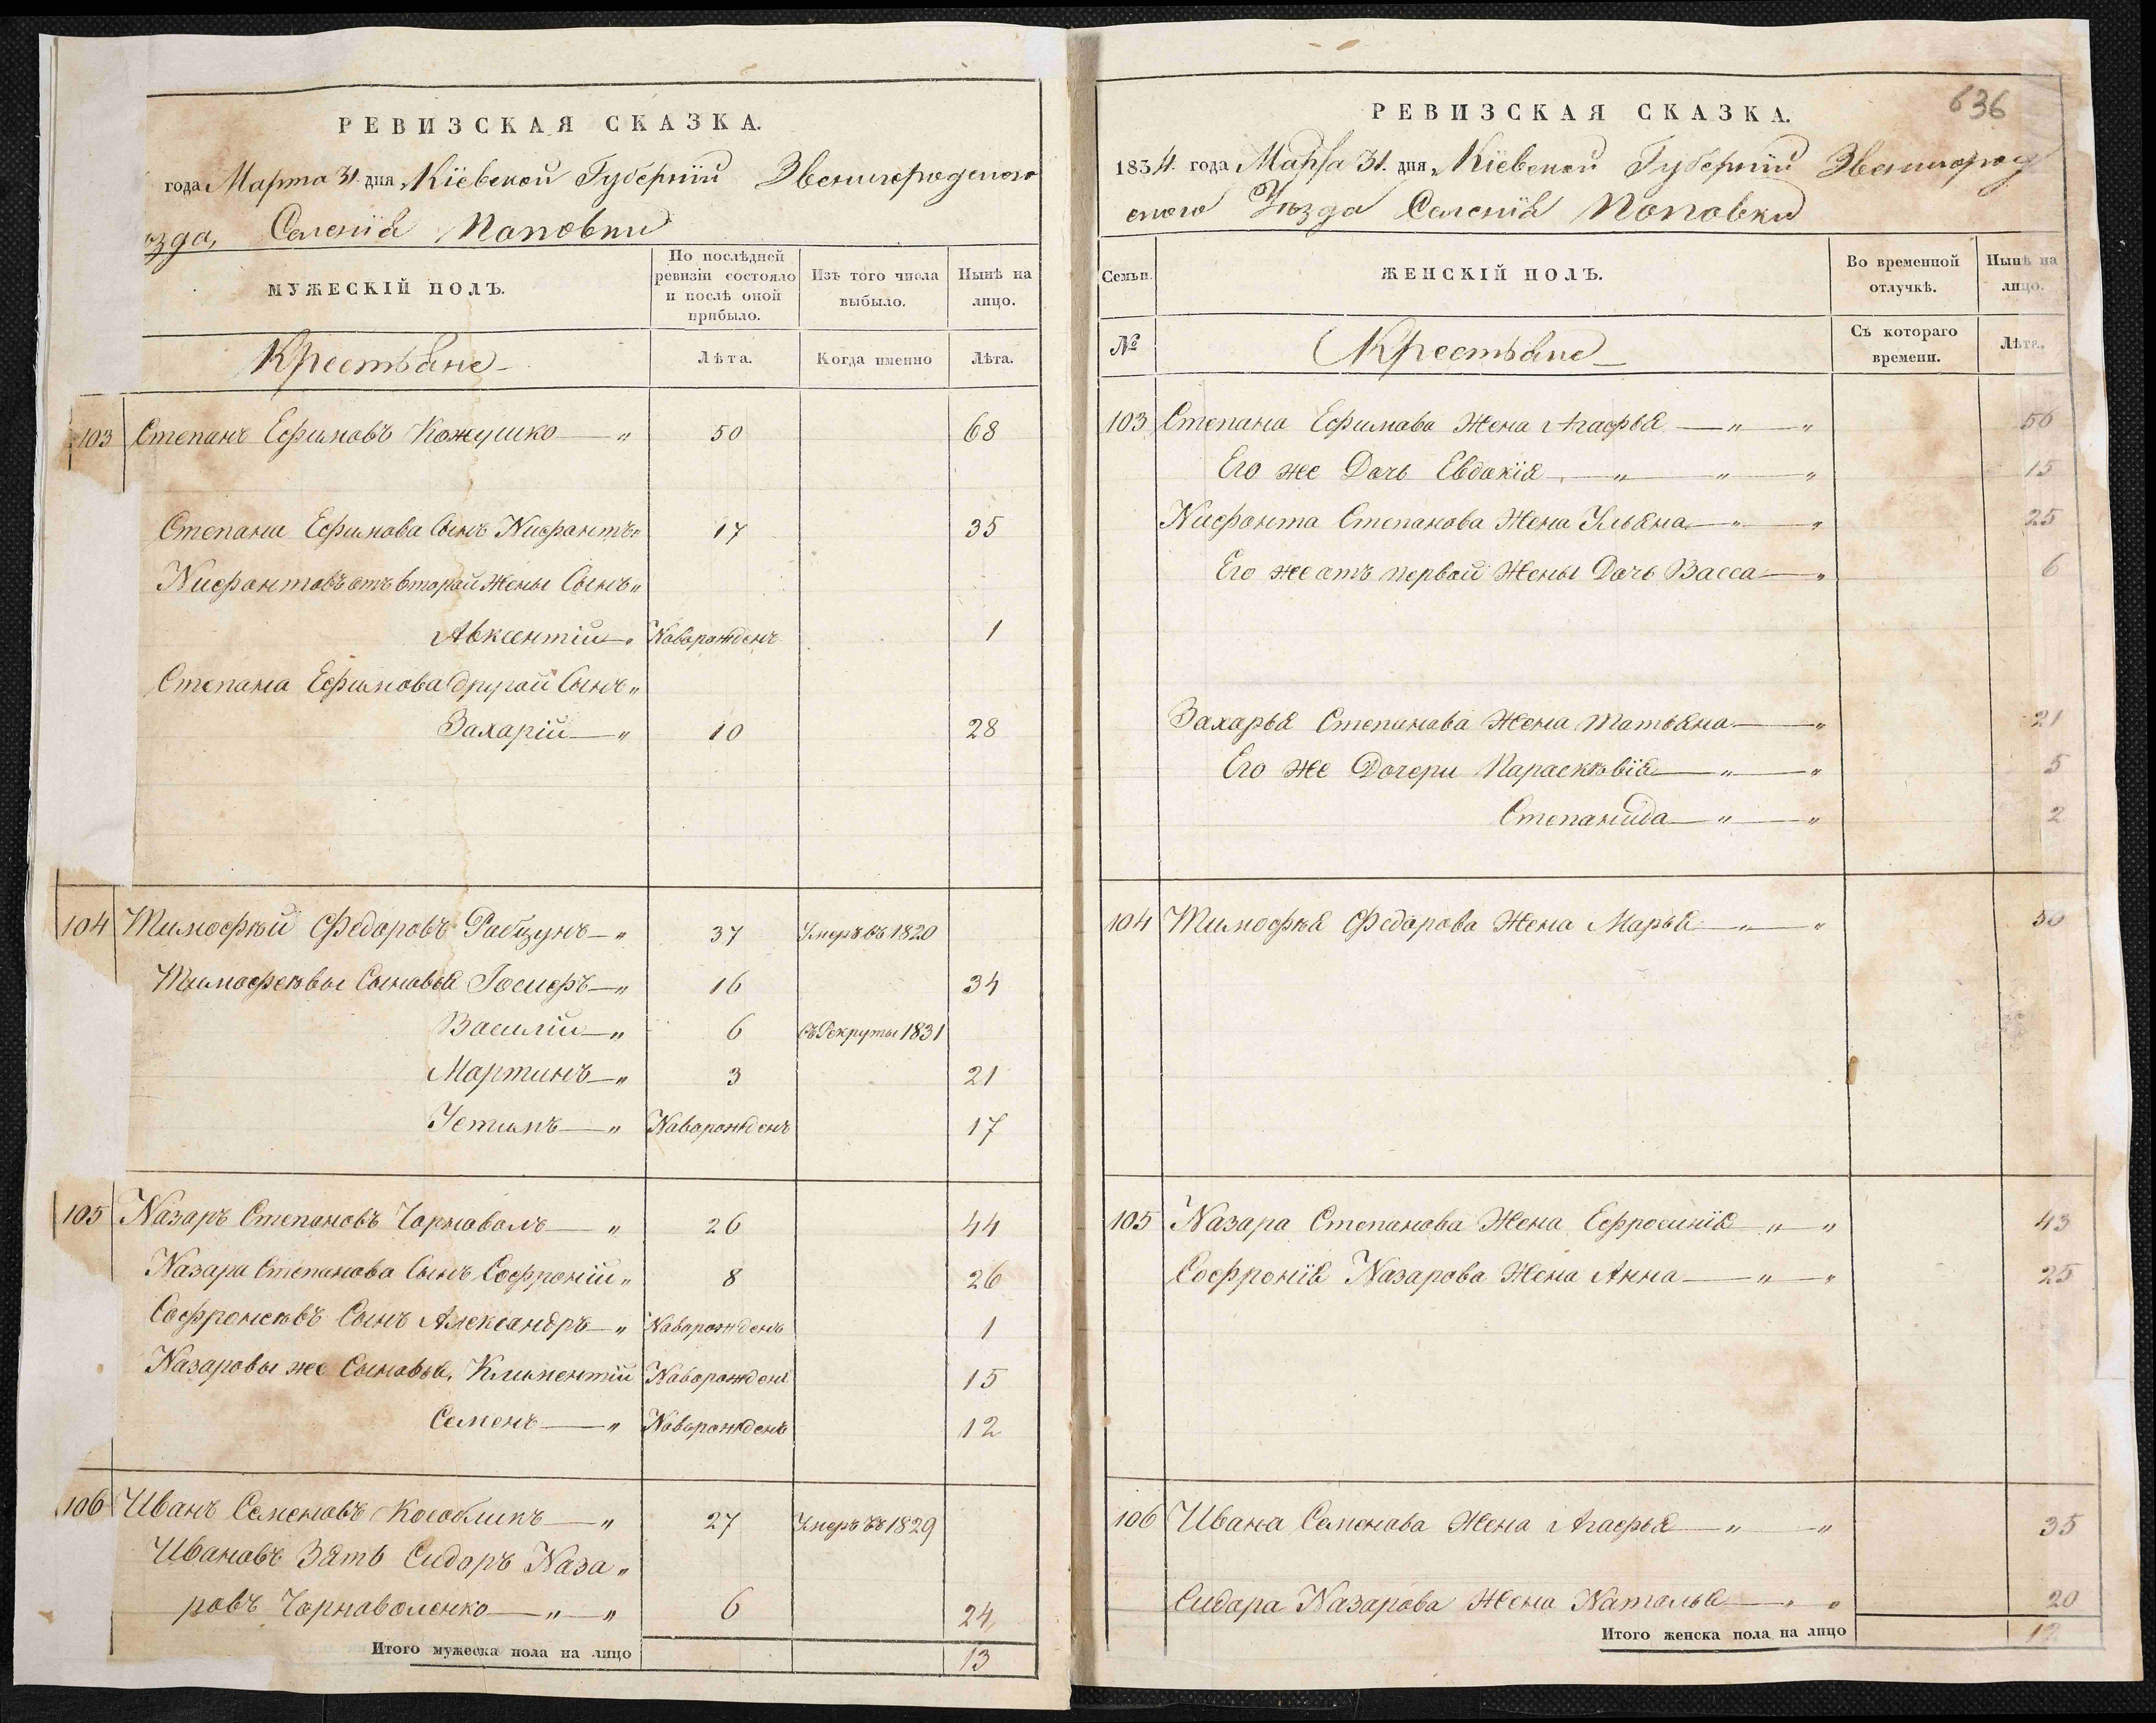 РЕВИЗСКАЯ СКАЗКА.
года Марта 31 дня Кіевской Губерніи Звенигородского
ѣзда, Селенія Поповки
МУЖЕСКІЙ ПОЛЪ.
По послѣдней ревизіи состояло и послѣ оной прибыло.
Изъ того числа выбыло.
Нынѣ на лицо.
Крестьяне
Лѣта.
Когда именно
Лѣта.
103 Степанъ Ефимовъ Кожушко — " 50 68
Степана Ефимова Сынъ Нифантъ " 17 35
Нифантовъ отъ второй жены Сынъ "
Авксентій — " Новорожденъ 1
Степана Ефимова другой Сынъ "
Захарій — " 10 28
104 Тимофѣй Федоровъ — " 37 Умеръ въ 1820
Тимофеевы Сыновья Іосифъ — " 16 34
Василій — " 6 въ Рекруты 1831
Мартинъ — " 3 21
Устимъ — " Новорожденъ 17
105 Назаръ Степановъ Чорноволъ — " 26 44
Назара Степанова Сынъ Софроній " 8 26
Софронеевъ Сынъ Александръ — " Новорожденъ 1
Назаровы же Сыновья, Климентій Новорожденъ 15
Семенъ — " Новорожденъ 12
106 Иванъ Семеновъ Кособликъ — " 27 Умеръ въ 1829
Ивановъ Зять Сидоръ Наза "
ровъ Чорноволенко — " — " 6 24,
Итого мужеска пола на лицо 13
636
РЕВИЗСКАЯ СКАЗКА.
1834. года Марта 31. дня Кіевской Губерніи Звенигород
ского Уѣзда Селенія Поповки
Семьи.
ЖЕНСКІЙ ПОЛЪ.
Во временной отлучкѣ.
Нынѣ на лицо.
№
Крестьяне
Съ котораго времени.
Лѣта.
103 Степана Ефимова Жена Агафья — " — " 50
Его же Дочь Евдокія — " — " — " 15
Нифонта Степанова Жена Ульяна — " — " 25
Его же отъ первой Жены Дочь Васса — " 6
Захарья Степанова Жена Татьяна — " 21
Его же Дочери Параскѣвія — " — " 5
Степанида — " — " 2
104 Тимофѣя Федорова Жена Марья — " — " 50
105 Назара Степанова Жена Ефросинія — " — " 43
Софронія Назарова Жена Анна — " — " 25
106 Ивана Семенова Жена Агафья — " — " 35
Сидора Назарова Жена Наталья — " — " 20
Итого женска пола на лицо 12